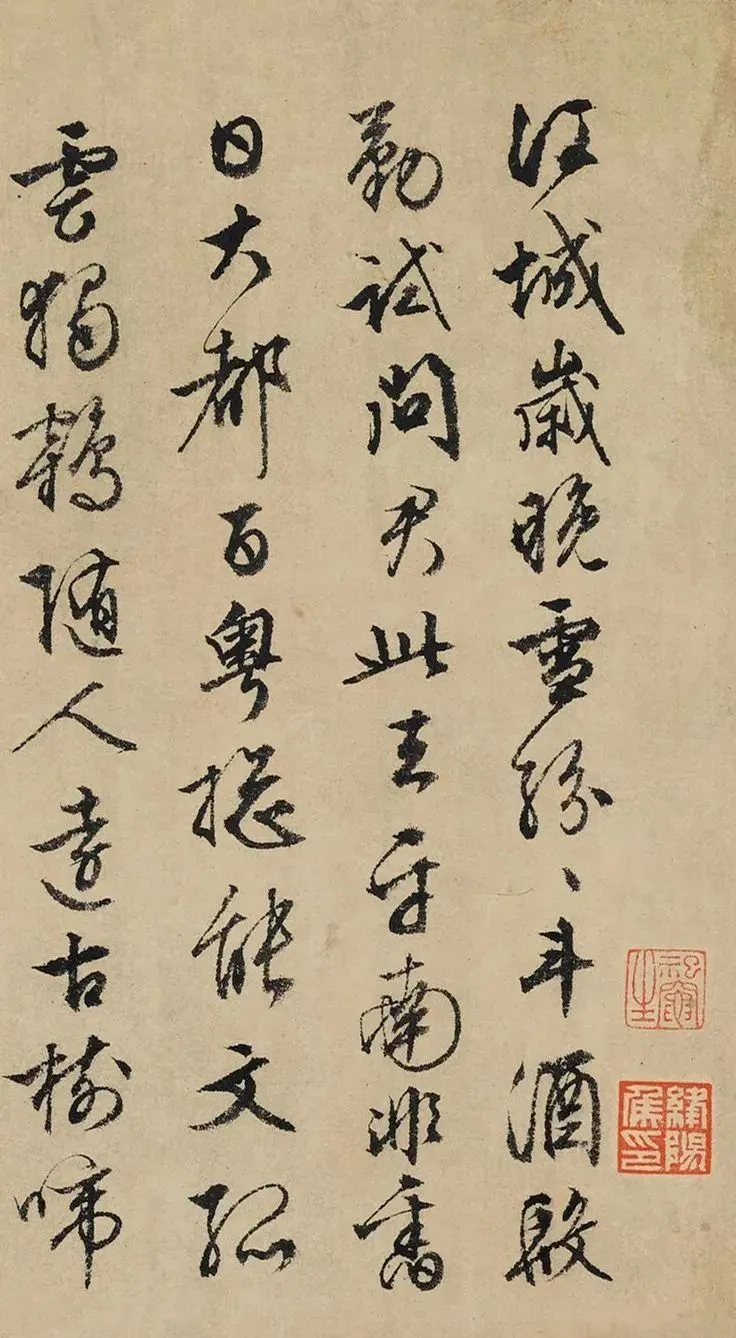 江城歲晚雪紛〻斗酒殷
勤試問君此去平南非舊
日大都百粵總能文孤
雲獨鶴隨人遠古樹啼